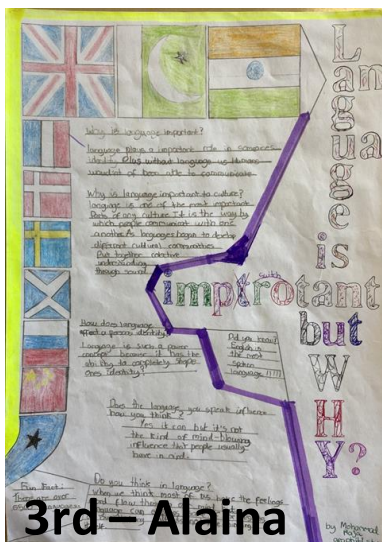 Language is
improtant
switch
but WHY?
Why is language important?
language plays a important role in
without language us Humans
wouldnt of been able to communicate
Why is language important to culture?
language is one of the most important
Parts of any culture. It is the way by
which people communicate with one
another. As languages began to develop
different cultural communities
Put together collective
understandings
through sound.
How does language
affect a persons identity?
Language is such a power
concept because it has the
ability to completely shape
ones identity!
Did you know?
English is
the most
spoken
language !!!!
Does the language you speak influence
how you think?
Yes it can but it's not
the kind of mind-blowing
influence that people usually
have in mind.
Do you think in language?
when we think most of us have the feelings
Fun Fact:
There are over
3rd – Alaina
by Mohammad